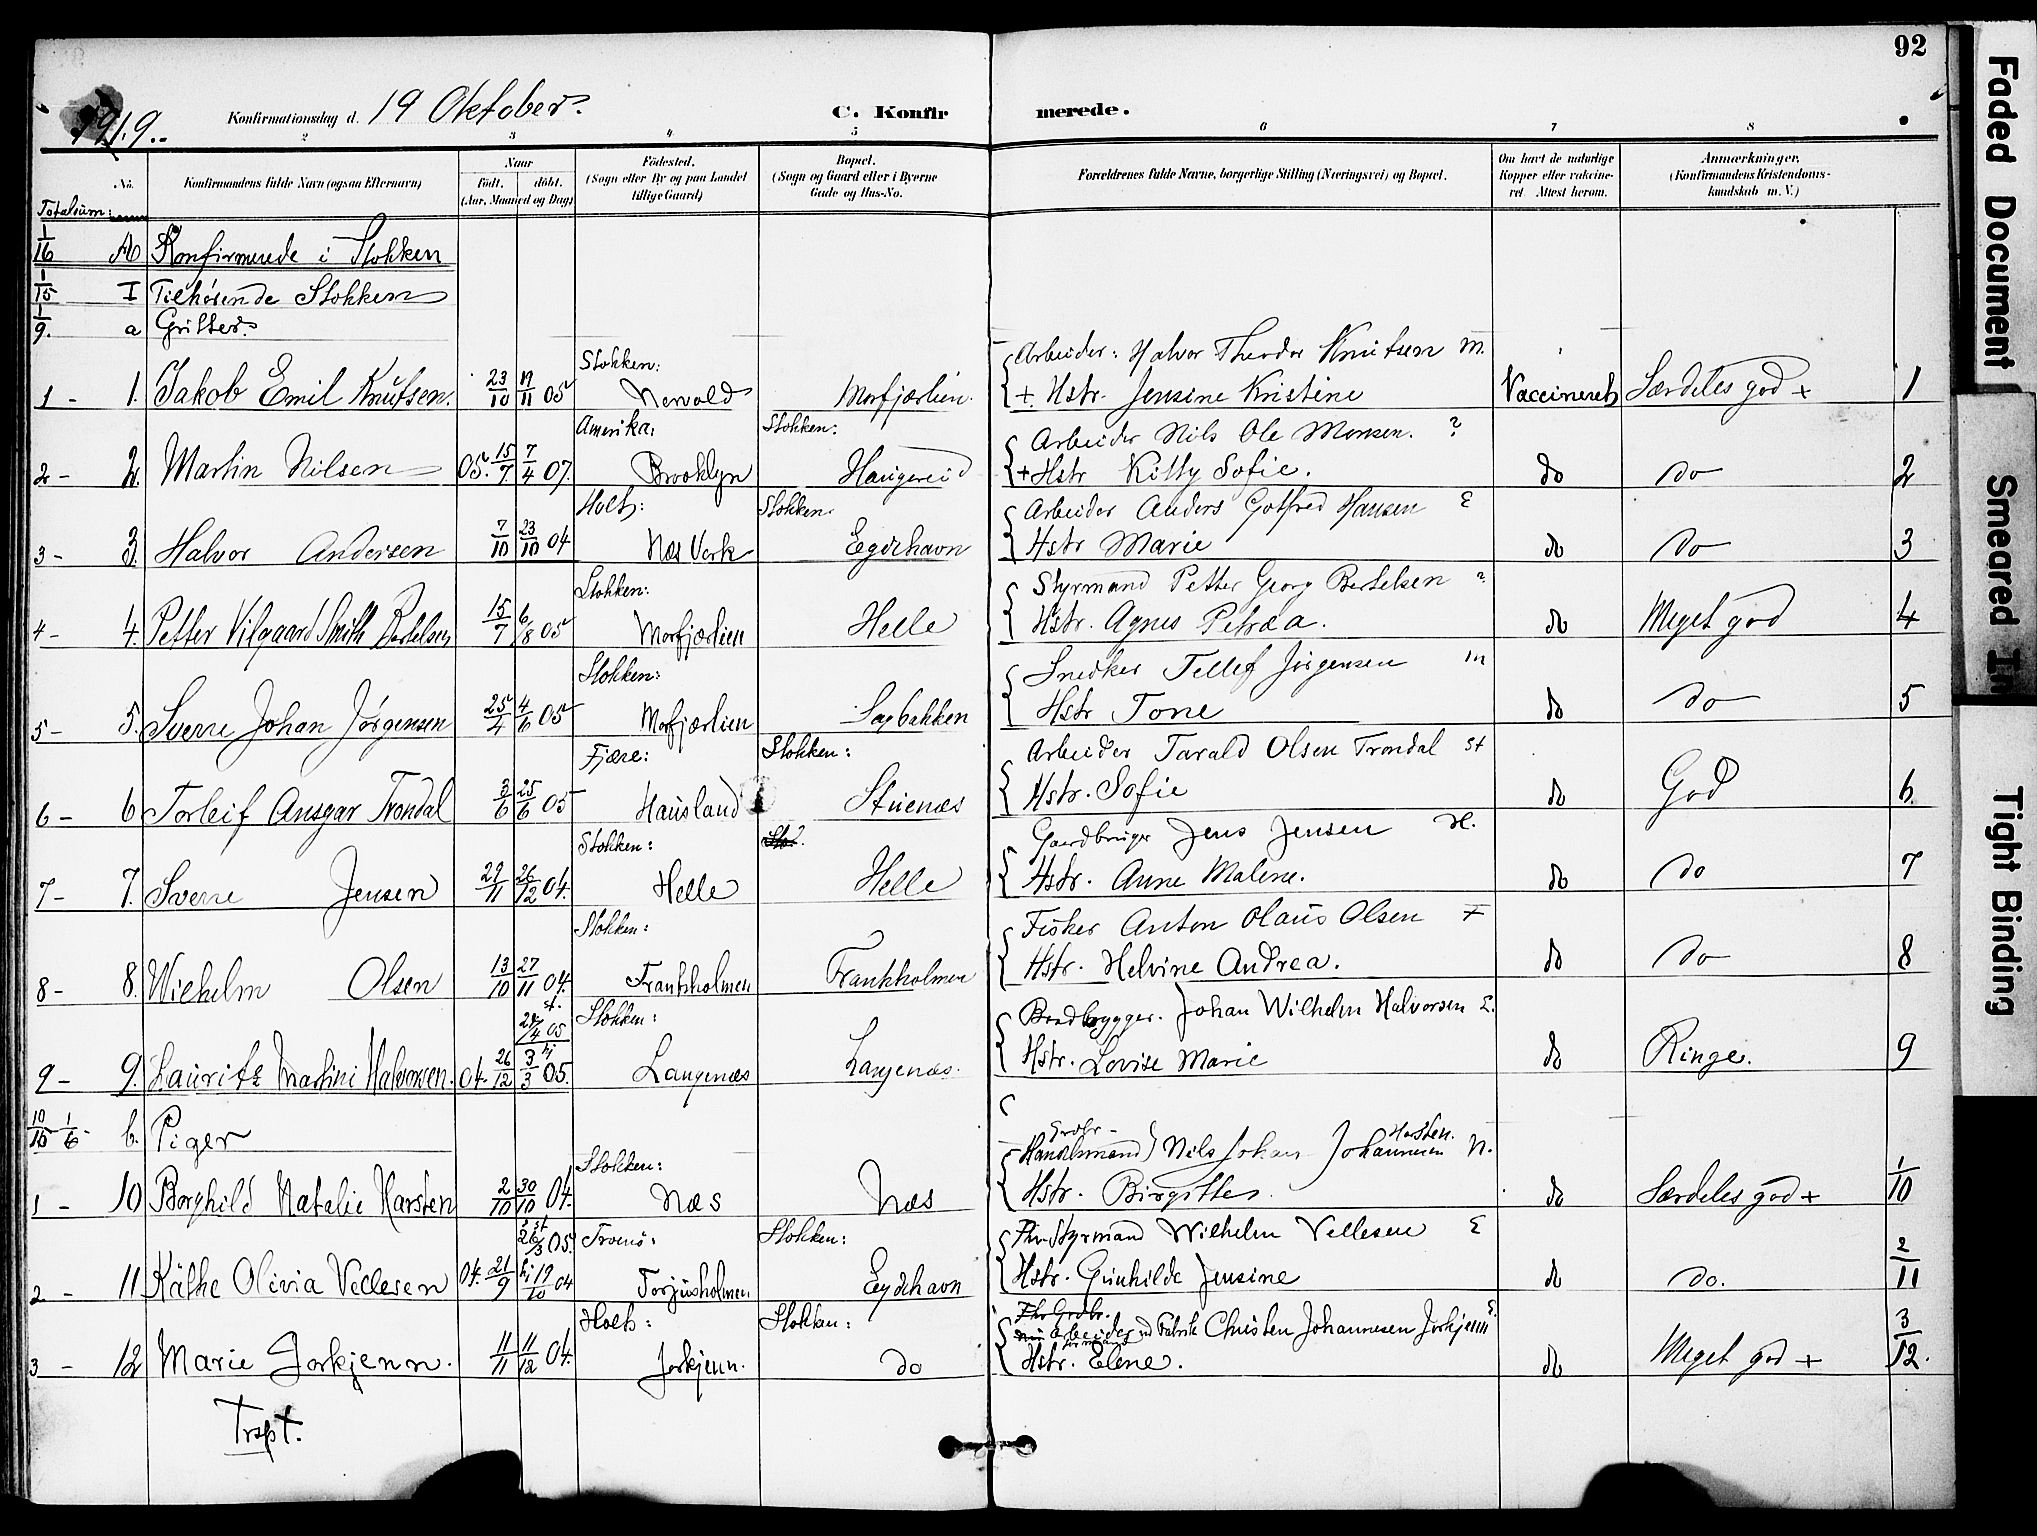 92
1919.
Konfirmationsdag d. 19 Oktober.
C. Konfirmerede.
2 3 4 5 6 7 8
No.
Konfirmandens fulde Navn (ogsaa Efternavn)
Naar
født. døbt.
(Aar, Maaned og Dag)
Fødested.
(Sogn eller By og paa Landet
tillige Gaard)
Bopæl.
(Sogn og Gaard eller i Byerne
Gade og Hus-No.
Forældrenes fulde Navne, borgerlige Stilling (Næringsvei) og Bopæl.
Om havt de naturlige
Kopper eller vaccine-
ret Attest herom.
Anmærkninger,
(Konfirmandens Kristendoms-
kundskab m. V.)
Totalsum:
1/16 Konfirmerede i Stokken
1/15 I Tilhørende Stokken
1/9. a Gutter
Stokken: Arbeider: Halvor Theodor Knutsen M.
1 - 1. Jakob Emil Knutsen. 23/10 19/11 05 Nesvold Morfjærlien. + Hstr. Jensine Kristine Vaccineret Særdeles god + 1
Amerika: Stokken: Arbeider Nils Ole Monsen. ?
2 - 2. Martin Nilsen 05. 15/7 7/4 07. Brooklyn Haugereid + Hstr Kitty Sofie. do do 2
Holt: Stokken: Arbeider Anders Gotfred Hansen E
3 - 3. Halvor Andersen 7/10 23/10 04 Næs Verk Eydehavn Hstr Marie do do 3
Stokken: Styrmand Petter Georg Bertelsen ?
4 - 4. Petter Vilgaard Smith Bertelsen 15/7 6/8 05 Morfjærlien Helle Hstr. Agnes Petrea. do Meget god 4
Stokken: Snedker Tellef Jørgensen m
5 - 5. Sverre Johan Jørgensen 25/4 4/6 05 Morfjærlien Sagbakken Hstr Tone do do 5
Fjære: Stokken: Arbeider Tarald Olsen Trondal St
6 - 6 Torleif Ansgar Trondal 3/6 25/6 05 Hausland Stuenæs Hstr. Sofie do God 6.
Stokken: Gaardbruger Jens Jensen H.
7 - 7. Sverre Jensen 29/11 26/12 04. Helle Helle Hstr. Anne Malene. do do 7
Stokken: Fisker Anton Olaus Olsen F
8 - 8. Wilhelm Olsen 13/10 27/11 04. Frankholmen Frankholmen Hstr. Helvine Andrea. do do 8
st. 24/4 05 Stokken: Baadbygger. Johan Wilhelm Halvorsen E.
9 - 9. Lauritz Martini Halvorsen. 04. 26/12 hj 3/3 05. Langenæs Langenæs. Hstr. Lovise Marie do Ringe. 9
10/15 1/6 - b. Piger
Stokken: Handelsmand Nils Johan Johannesen Harsten. N.
1 - 10 Borghild Natalie Harsten 2/10 30/10 04. Næs Næs Hstr. Birgitte. do Særdeles god + 1/10
st 26/3 05. Tromø: Stokken: Styrmand Wilhelm Vellesen E
2 - 11 Käthe Olivia Vellesen 04. 21/9 hj 19/10 04 Torjusholmen Eydehavn Hstr. Gunhilde Jensine do do. 2/11
Holt: Stokken: Arbeider ved Fabrik Christen Johannesen Jorkjenn E.
3 - 12 Marie Jorkjenn. 11/11 11/12 04. Jorkjenn. do Hstr. Elene. do Meget god + 3/12.
Trspt.
Faded Document
Smeared In
Tight Binding